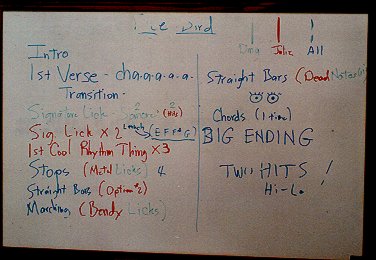 Intro
1st Verse - cha.a.a.a.a.
Transition.
Signature Lick -
Sig. Lick x 2 (E F F# G)
1st Cool Rhythm Thing x3
Stops (Metal Licks) 4
Straight Bars (Option #2)
Marching (Bendy Licks)
Julie All
Straight Bars (Dead Notes
Chords (1 time)
BIG ENDING
TWO HITS !
Hi-Lo